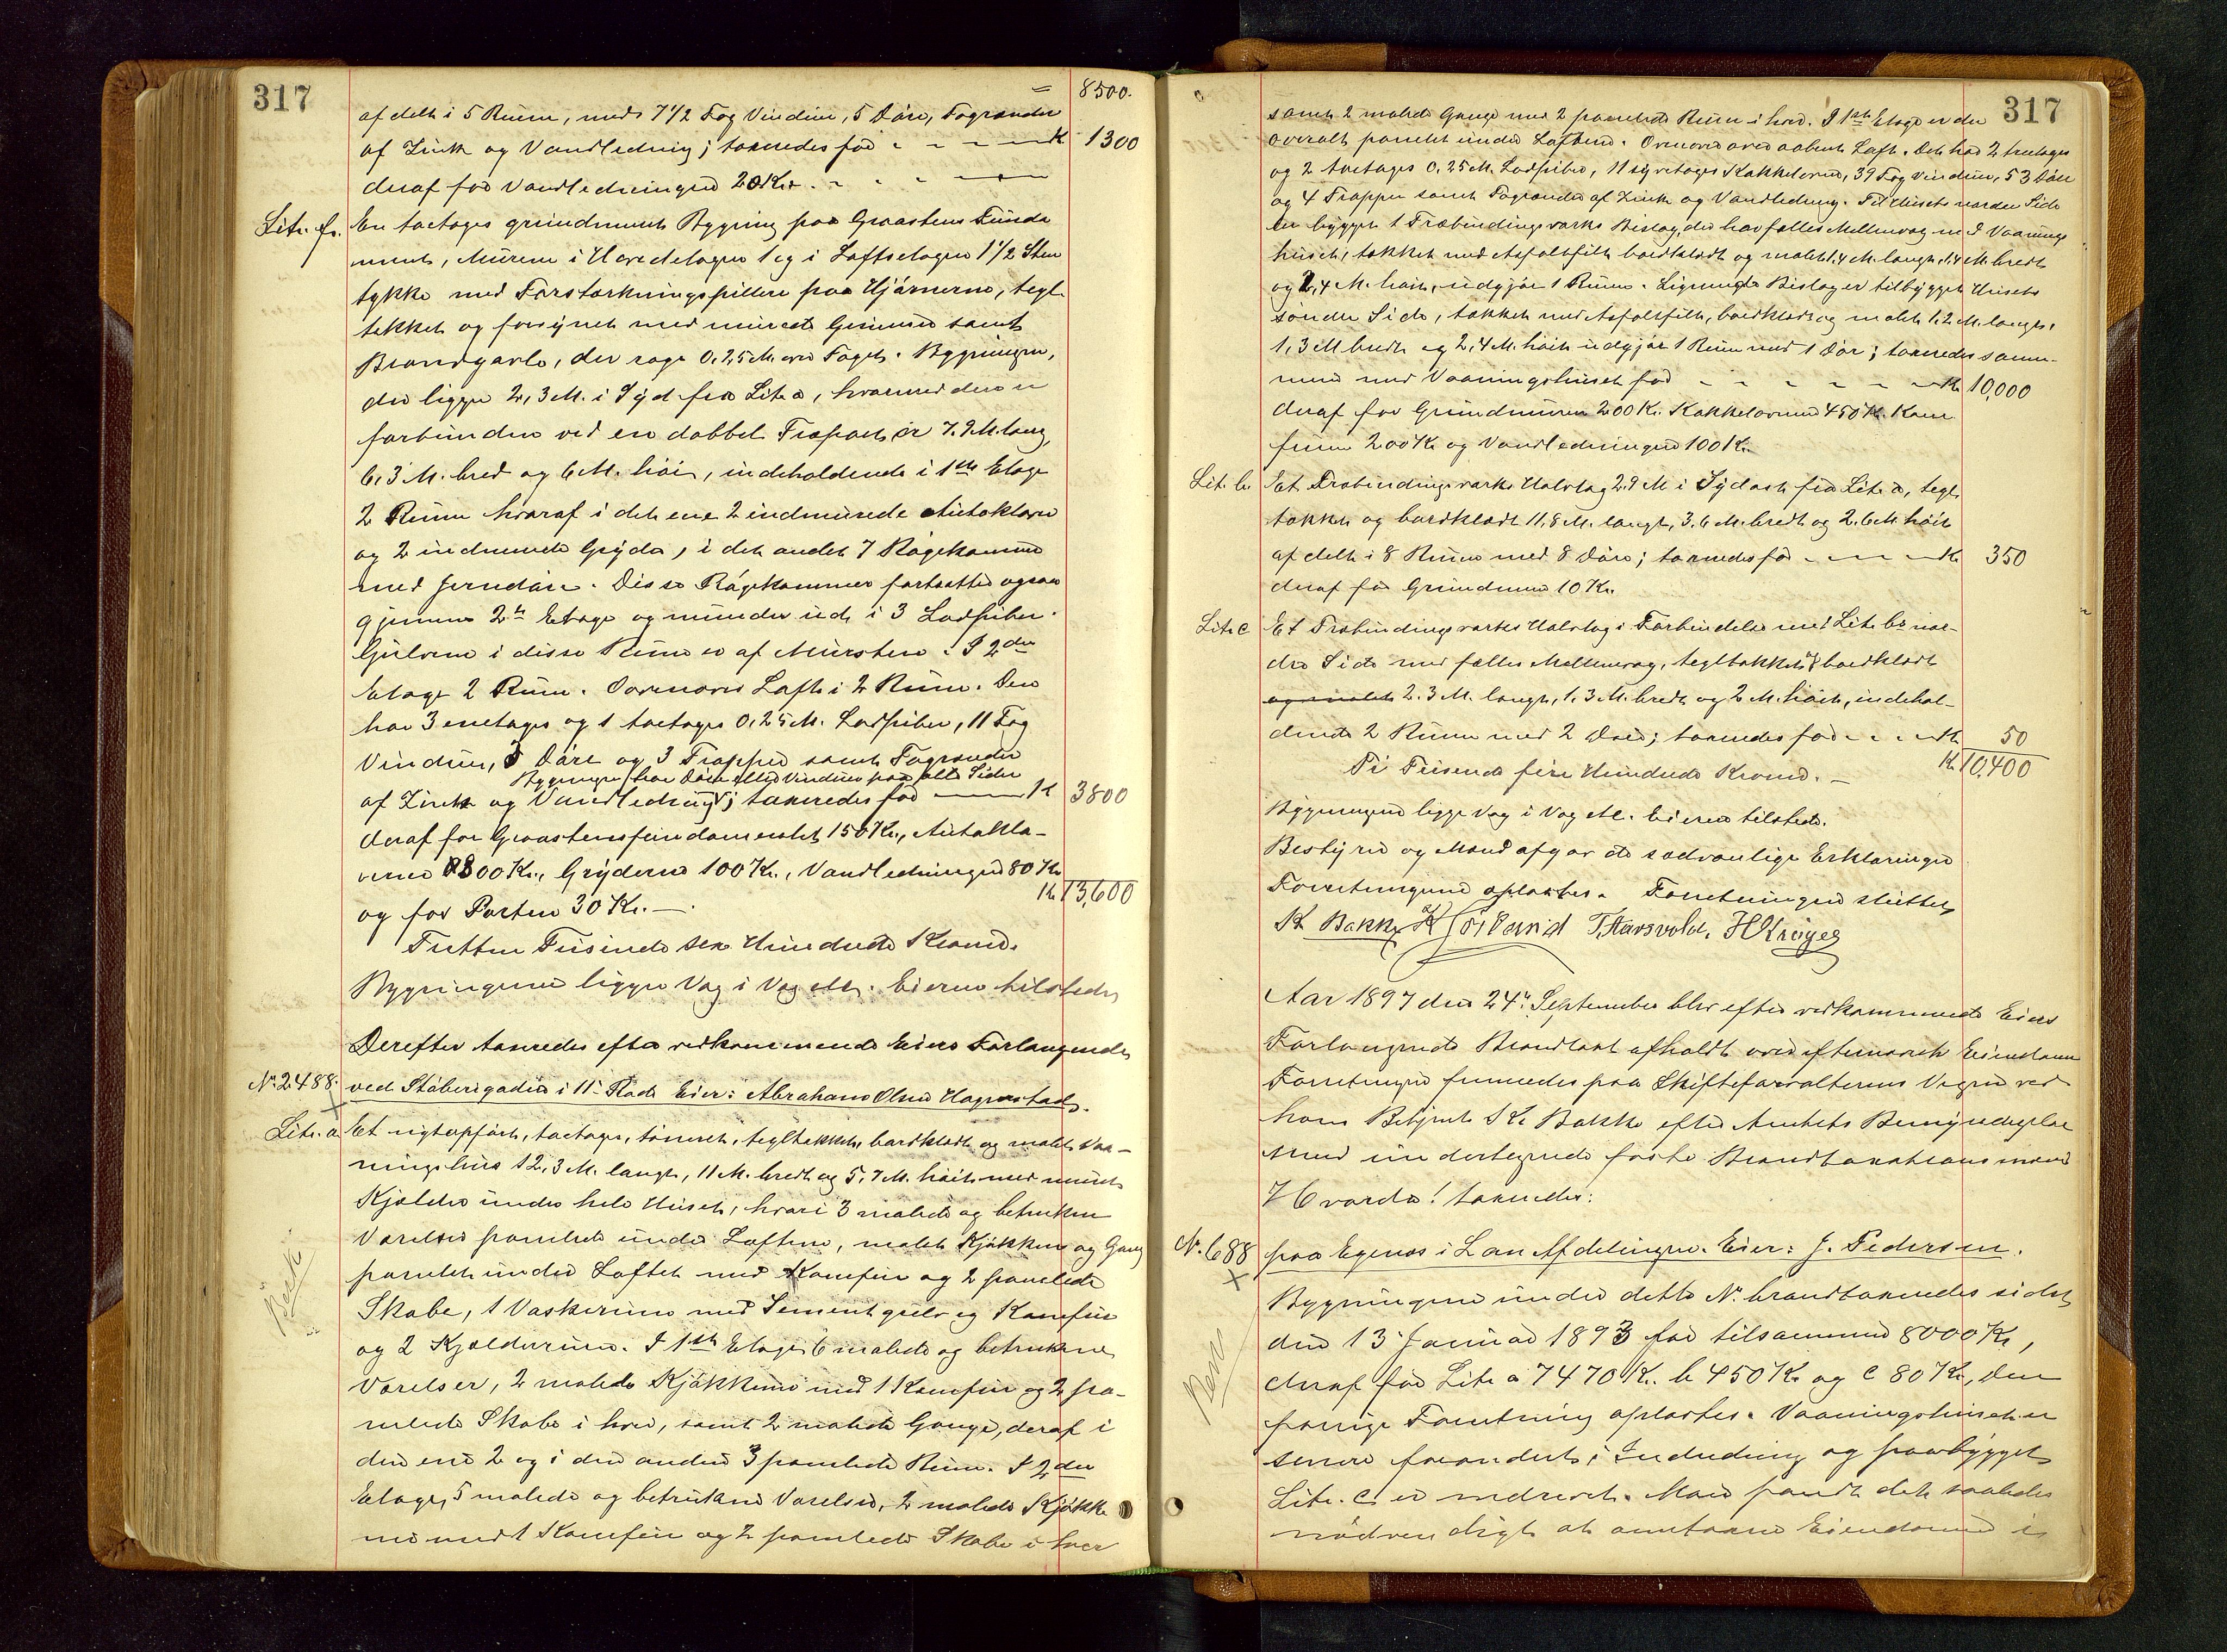 317
= 8500.
afdelt i 5 Rum, med 7 1/2 Fag Vinduer, 5 Döre, Tagrender
af Zink og Vandledning; taxeredes for - - - K 1300
deraf for Vandledningen 20 Kr.
Litr. f. En toetages grundmuret Bygning paa Graastens Funda
ment, Murene i Hovedetagen 1 og i Loftsetagen 1 1/2 Sten
tykke med Forstærkningspillere paa Hjörnerne, tegl
tækket og forsynet med murede Gesimser samt
Brandgavle, der rage 0,25 M. over Taget. Bygningen,
der ligger 2,3 M. i Syd fra Litr a, hvormed den er
forbunden ved en dobbel Træport er 7.9 M. lang
6,3 M. bred og 6 M. höi, indeholdende i 1ste Etage
2 Rum hvoraf i det ene 2 indmurede Autoklaver
og 2 indmurede Gryder, i det andet 7 Rögekammer
med Jerndöre. Disse Rögekammer fortsætter ogsaa
gjennem 2n Etage og munder ud i 3 Ladpiber.
Gulvene i disse Rum er af Mursten. I 2den
Etage 2 Rum. Ovenover Loft i 2 Rum. Den
har 3 enetages og 1 toetages 0,25 M. Ladpiber, 11 Fag
Vinduer, 8 Döre og 3 Trapper samt Tagrender
Bygningen har Döre eller Vinduer paa alle Sider
af Zink og Vandledning; taxeredes for K 3800
deraf for Graastensfundamentet 150 Kr., Autokla-
verne 800 Kr., Gryderne 100 Kr., Vandledningen 80 Kr
og for Porten 30 Kr. K 13,600
Tretten Tusinde sex Hundrede Kroner.
Bygningerne ligger Vag i Vag etc. Eieren tilstede.
Derefter taxeredes efter vedkommende Eiers Forlangende
No 2488. ved Stöberigaden i 11te Rode Eier: Abraham Olsen Hagenstad.
Litr. a Et nyt opfört, toetages, tömret, tegltækket, bordklædt og malet Vaa-
ningshus 12,3 M. langt, 11 M. bredt og 5,7 M. höit med muret
Kjælder under hele Huset, hvori 3 malede og betrukne
Værelser panelede under Loftene, malet Kjökken og Gang
panelet under Loftet med Komfur og 2 panelede
Skabe, 1 Vaskerum med Sementgulv og Komfur
og 2 Kjælderrum. I 1ste Etage 6 malede og betrukne
Værelser, 2 malede Kjökkener med 1 Komfur og 2 pa-
nelede Skabe i hver, samt 2 malede Gange, deraf i
den ene 2 og i den anden 3 panelede Rum. I 2den
Etage, 5 malede og betrukne Værelser, 2 malede Kjökke
ner med 1 Komfur og 2 panelede Skabe i hver
317
samt 2 malede Gange med 2 panelede Rum i hver. I 1ste Etage er der
overalt panelet under Loftene. Ovenover er aabent Loft. Det har 2 treetages
og 2 toetages 0,25 M. Ladpiber, 11 syvetages Kakkelovne, 39 Fag Vinduer, 53 Döre
og 4 Trapper samt Tagrender af Zink og Vandledning. Til Husets nordre Side
er bygget 1 Træbindingsværks Bislag, der har fælles Mellemvæg med Vaanings
huset, tækket med Asfaltfilt bordklædt og malet 1,4 M. langt, 1,4 M. bredt
og 2,4 M. höit, udgjör 1 Rum. Lignende Bislag er tilbygget Husets
söndre Side, tækket med Asfaltfilt, bordklædt og malet 1,2 M. langt,
1,3 M bredt og 2,4 M. höit udgjör 1 Rum med 1 Dör; taxeredes sam-
men med Vaaningshuset for - - - K 10,000
deraf for Grundmuren 200 Kr. Kakkelovnene 450 Kr. Kom
furene 200 Kr og Vandledningen 100 Kr.
Litr. b. Et Træbindingsværks Halvtag 2.9 M i Sydost fra Litr a, tegl
tækket og bordklædt 11,8 M. langt, 3.6 M. bredt og 2.6 M. höit
afdelt i 8 Rum med 8 Döre; taxeredes for - - - K 350
deraf for Grundmur 10 Kr.
Litr c Et Træbindingsværks Halvtag i Forbindelse med Litr b's nor-
dre Side med fælles Mellemvæg, tegltækket og bordklædt
og malet 2.3 M. langt, 1.3 M. bredt og 2 M. höit, indehol-
dende 2 Rum med 2 Döre; taxeredes for - - - K 50
Ti Tusende fire Hundrede Kroner. K 10,400
Bygningerne ligge Vag i Vag etc. Eieren tilstede.
Bestyrer og Mænd afgav de sædvanlige Erklæringer
Forretningerne oplæstes. Forretningen sluttet
K Bakke T. Havsvold. H Kröyer
Aar 1897 den 24de September blev efter vedkommende Eiers
Forlangende Brandtaxt afholdt over efternævnte Eiendom
Forretningen fremmedes paa Skifteforvalterens Vegne ved
hans Betjent K Bakke efter Amtets Bemyndigelse
med undertegnede faste Brandtaxationsmænd
Hvorda! taxeredes:
No. 688 paa Egenæs i Lan Afdelingen. Eier: J. Pedersen.
Bygningerne under dette No. brandtaxeredes sidst
den 13 Januar 1893 for tilsammen 8000 Kr,
deraf for Litr a 7470 Kr. b 450 Kr og c 80 Kr, den
forrige Forretning oplæstes. Vaaningshuset er
senere forandert i Indredning og paabygget
Litr. c er nedrevet. Man fandt det saaledes
nödvendigt at omtaxere Eiendommen i